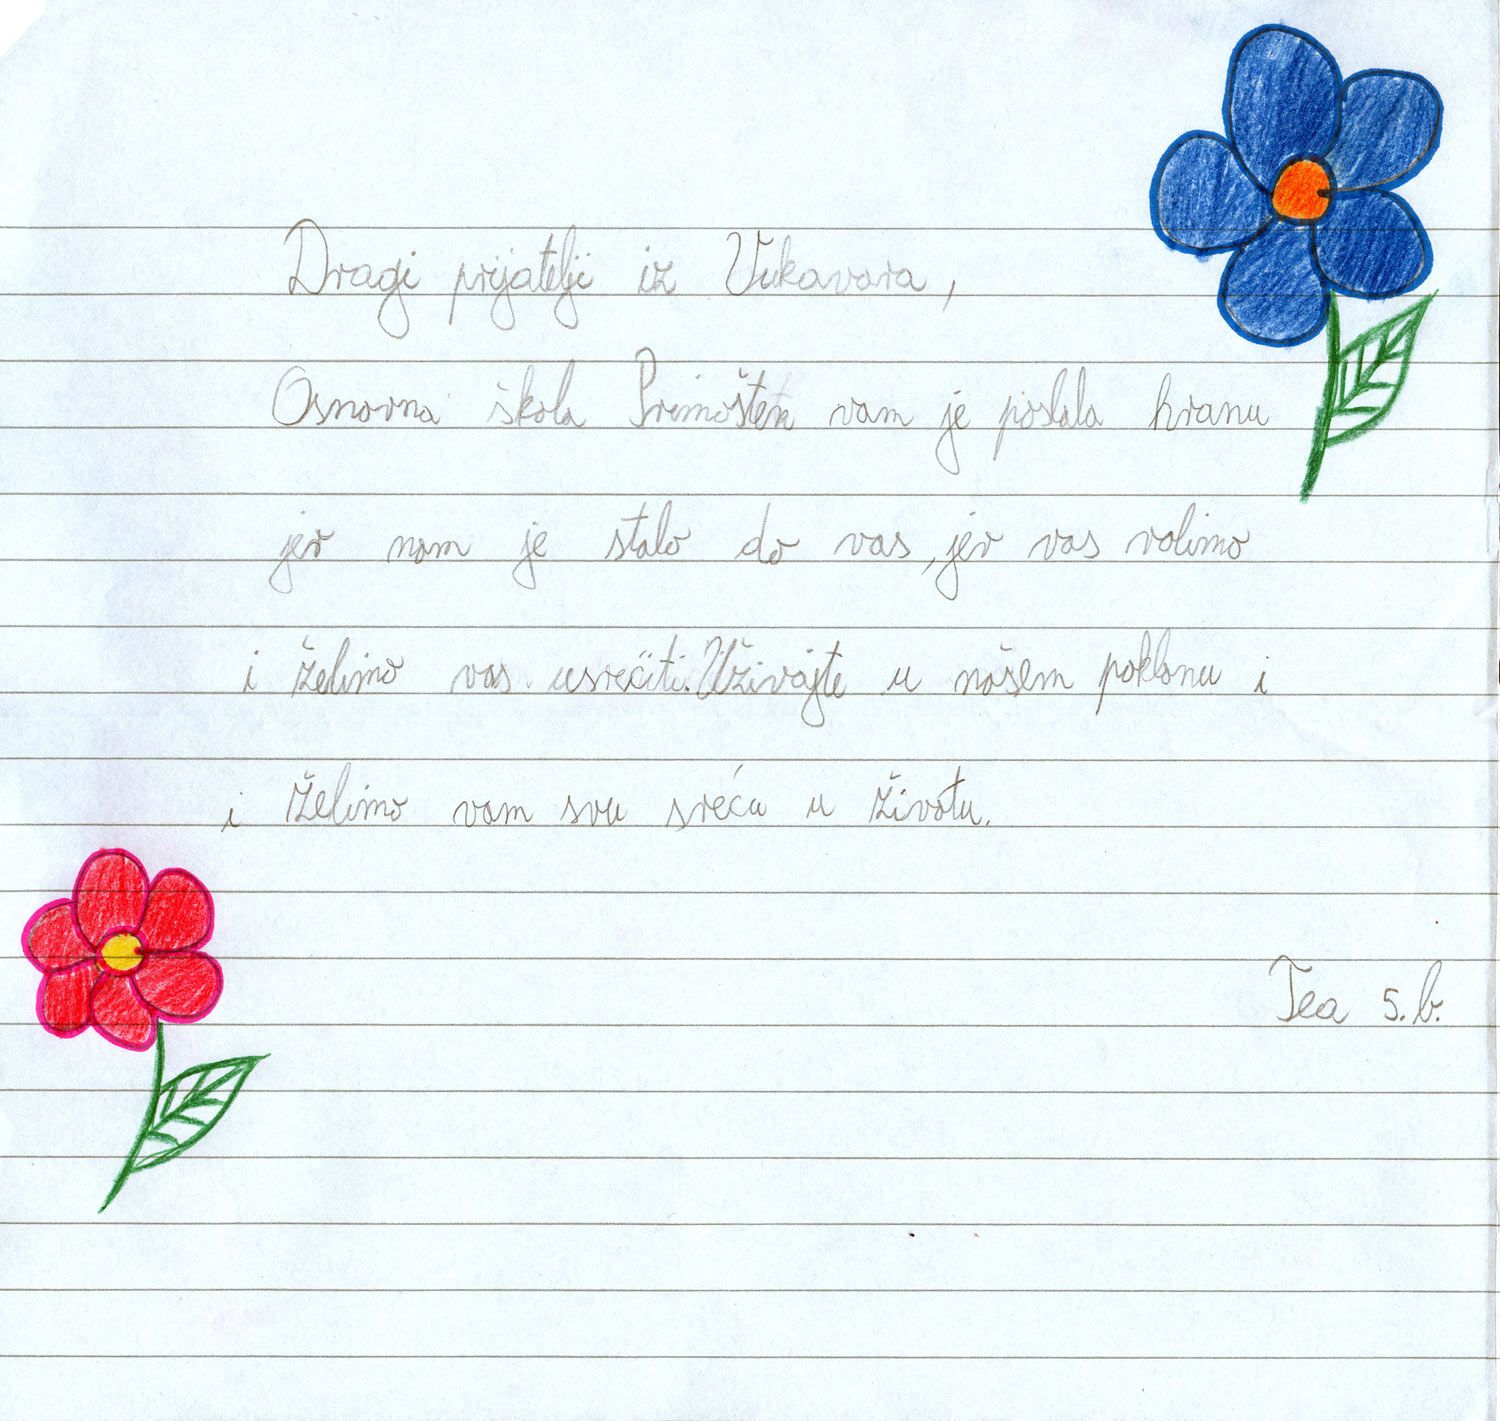 Dragi prijatelji iz Vukavara,
Osnovna škola Primošten vam je poslala hranu
jer nam je stalo do vas, jer vas volimo
i želimo vas usrećiti. Uživajte u našem poklonu i
i želimo vam svu sreću u životu.
Tea 5.b.